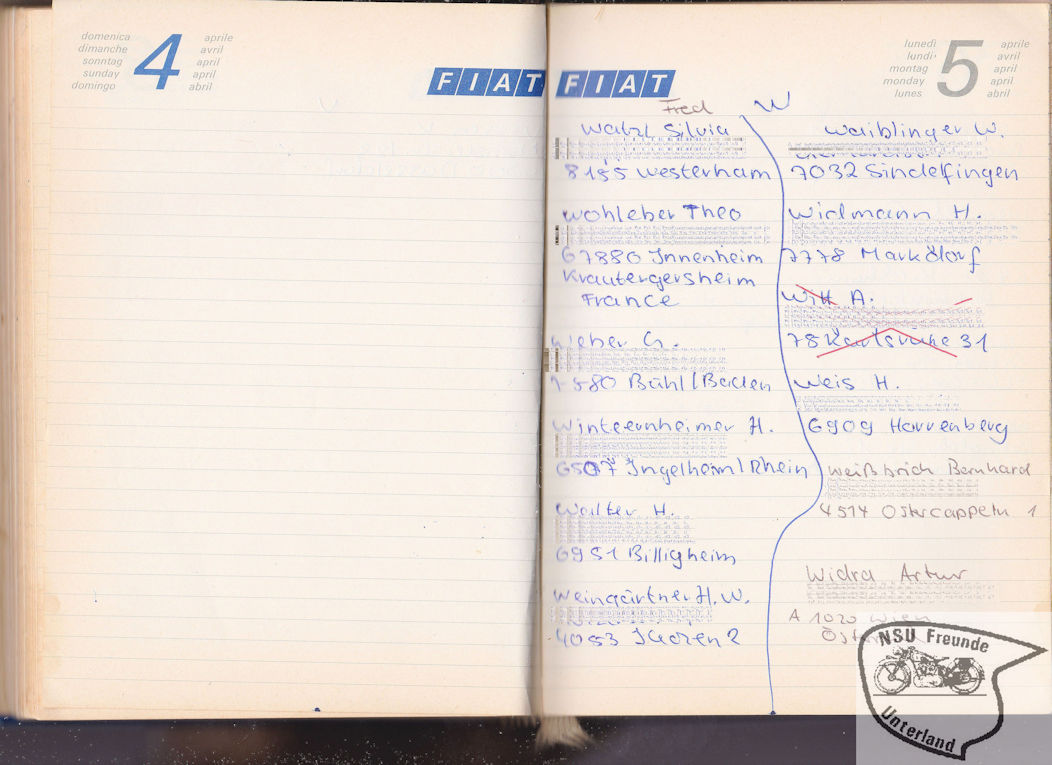 domenica
dimanche
sonntag
sunday
domingo
4
aprile
avril
april
april
abril
FIAT
FIAT
lunedì
lundi
montag
monday
lunes
5
aprile
avril
april
april
abril
W
Fred
Watzl Silvia
8155 Westerham
Wohleber Theo
67880 Innenheim
Krautergersheim
France
G.
580 Bühl/Baden
Winternheimer H.
6507 Ingelheim/Rhein
Walter H.
6951 Billigheim
Weingärtner H.W.
4053 2
Waiblinger W.
7032 Sindelfingen
Widmann H.
7778 Markdorf
Witt A.
78 Karlsruhe 31
Weis H.
6909 Horrenberg
Weißbrich Bernhard
4514 Ostercappeln 1
Widra Artur
A 1020 Wien
NSU Freunde
Unterland